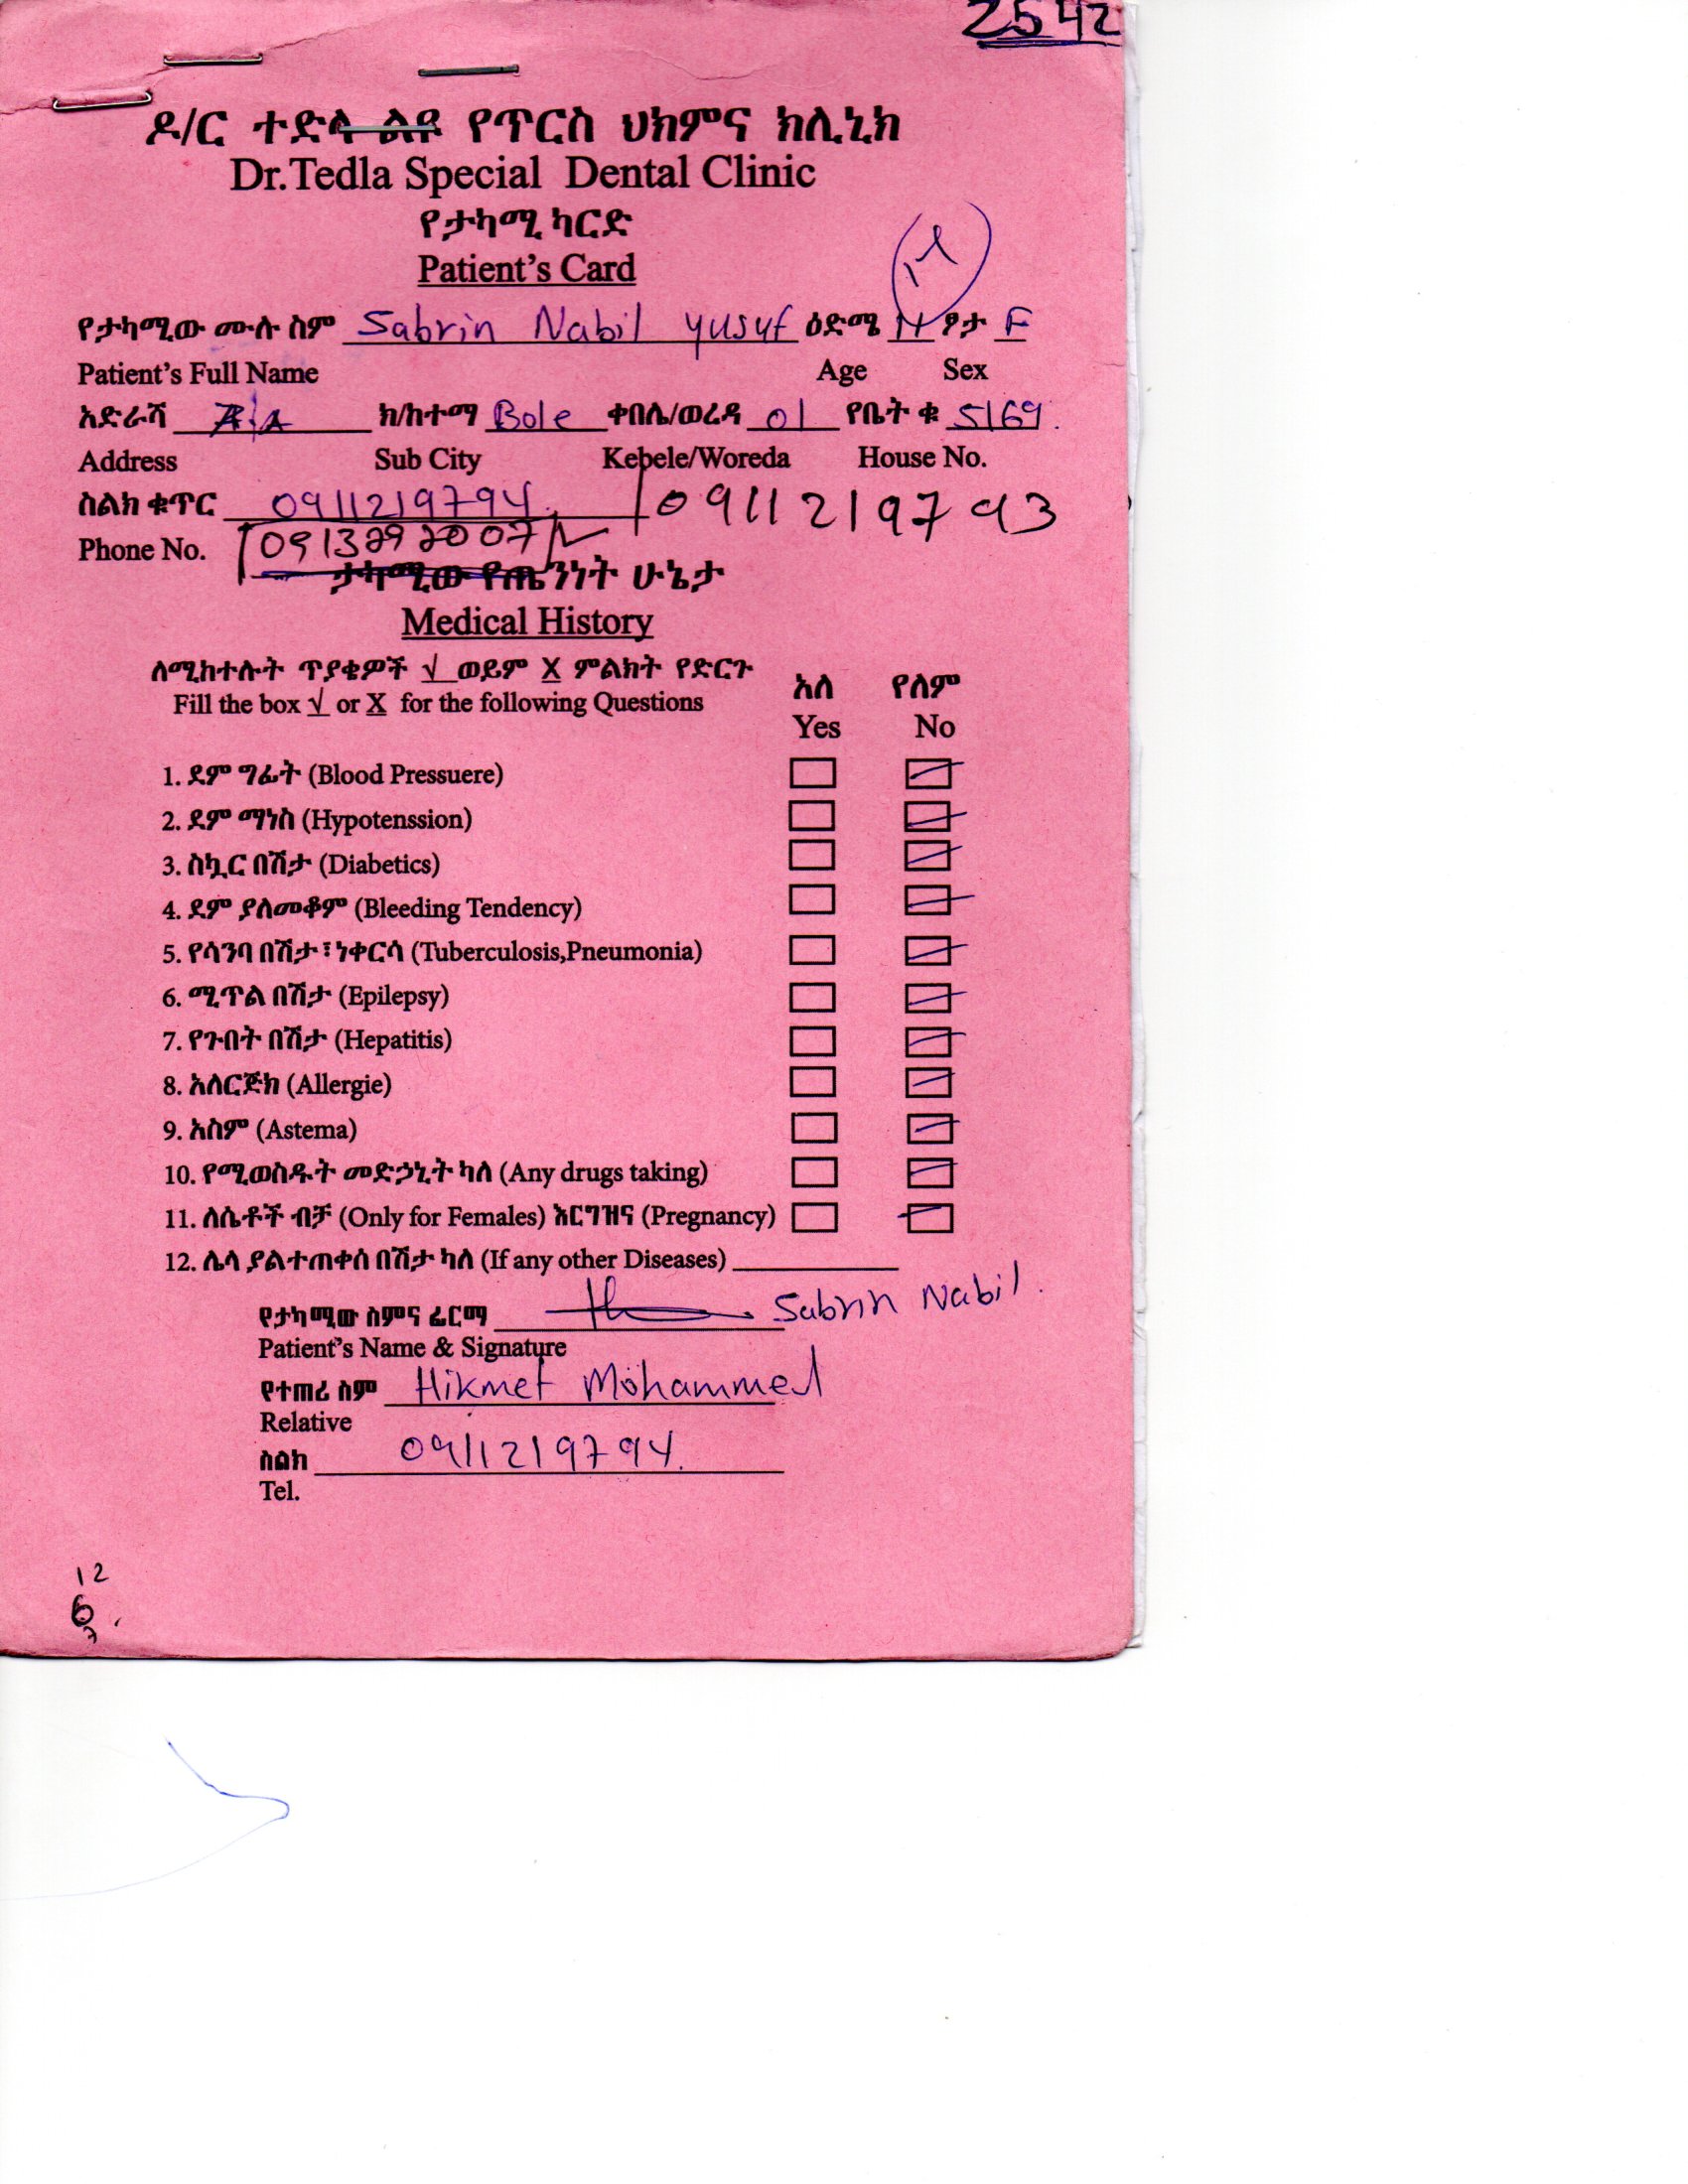 2542
ዶ/ር ተድላ ልዩ የጥርስ ህክምና ክሊኒክ
Dr.Tedla Special Dental Clinic
የታካሚ ካርድ
Patient's Card
የታካሚው ሙሉ ስም Sabrin Nabil yusuf ዕድሜ 14 ፆታ F
Patient's Full Name Age Sex
አድራሻ A.A ክ/ከተማ Bole ቀበሌ/ወረዳ 01 የቤት ቁ 5169.
Address Sub City Kebele/Woreda House No.
ስልክ ቁጥር 0911219794. 0911219793
Phone No. 0913292007
ታካሚው የጤንነት ሁኔታ
Medical History
ለሚከተሉት ጥያቄዎች √ ወይም X ምልክት የድርጉ
Fill the box √ or X for the following Questions
አለ የለም
Yes No
1. ደም ግፊት (Blood Pressuere)
2. ደም ማነስ (Hypotenssion)
3. ስኳር በሽታ (Diabetics)
4. ደም ያለመቆም (Bleeding Tendency)
5. የሳንባ በሽታ፣ነቀርሳ (Tuberculosis,Pneumonia)
6. ሚጥል በሽታ (Epilepsy)
7. የጉበት በሽታ (Hepatitis)
8. አለርጅክ (Allergie)
9. አስም (Astema)
10. የሚወስዱት መድኃኒት ካለ (Any drugs taking)
11. ለሴቶች ብቻ (Only for Females) እርግዝና (Pregnancy)
12. ሌላ ያልተጠቀሰ በሽታ ካለ (If any other Diseases)
የታካሚው ስምና ፊርማ Sabrin Nabil.
Patient's Name & Signature
የተጠሪ ስም Hikmet Mohammed
Relative
ስልክ 0911219794.
Tel.
12
6
7